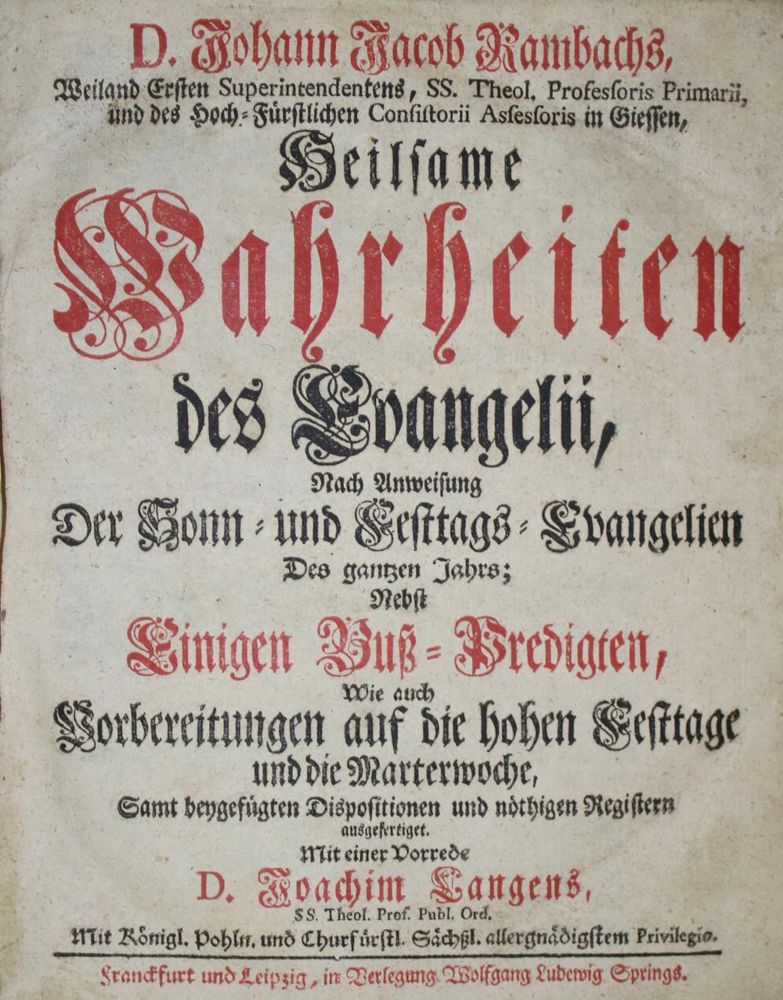 D. Johann Jacob Rambachs,
Weiland Ersten Superintendentens, SS. Theol. Professoris Primarii,
und des Hoch-Fürstlichen Consistorii Assessoris in Giessen,
Heilsame
Wahrheiten
des Evangelii,
Nach Anweisung
Der Sonn- und Festtags-Evangelien
Des gantzen Jahrs;
Nebst
Einigen Buß-Predigten,
Wie auch
Vorbereitungen auf die hohen Festtage
und die Marterwoche,
Samt beygefügten Dispositionen und nöthigen Registern
ausgefertiget.
Mit einer Vorrede
D. Joachim Langens,
SS. Theol. Prof. Publ. Ord.
Mit Königl. Pohln. und Churfürstl. Sächßl. allergnädigstem Privilegio.
Franckfurt und Leipzig, in Verlegung Wolfgang Ludewig Springs.